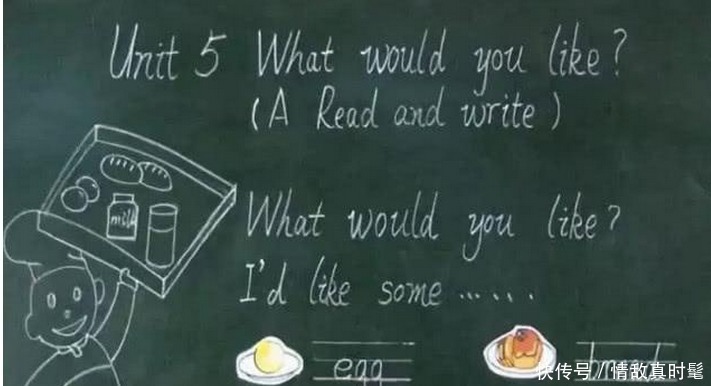 Unit 5 What would you like?
(A Read and write)
milk
What would you like?
I'd like some ......
egg
bread
快传号/情敌真时髦